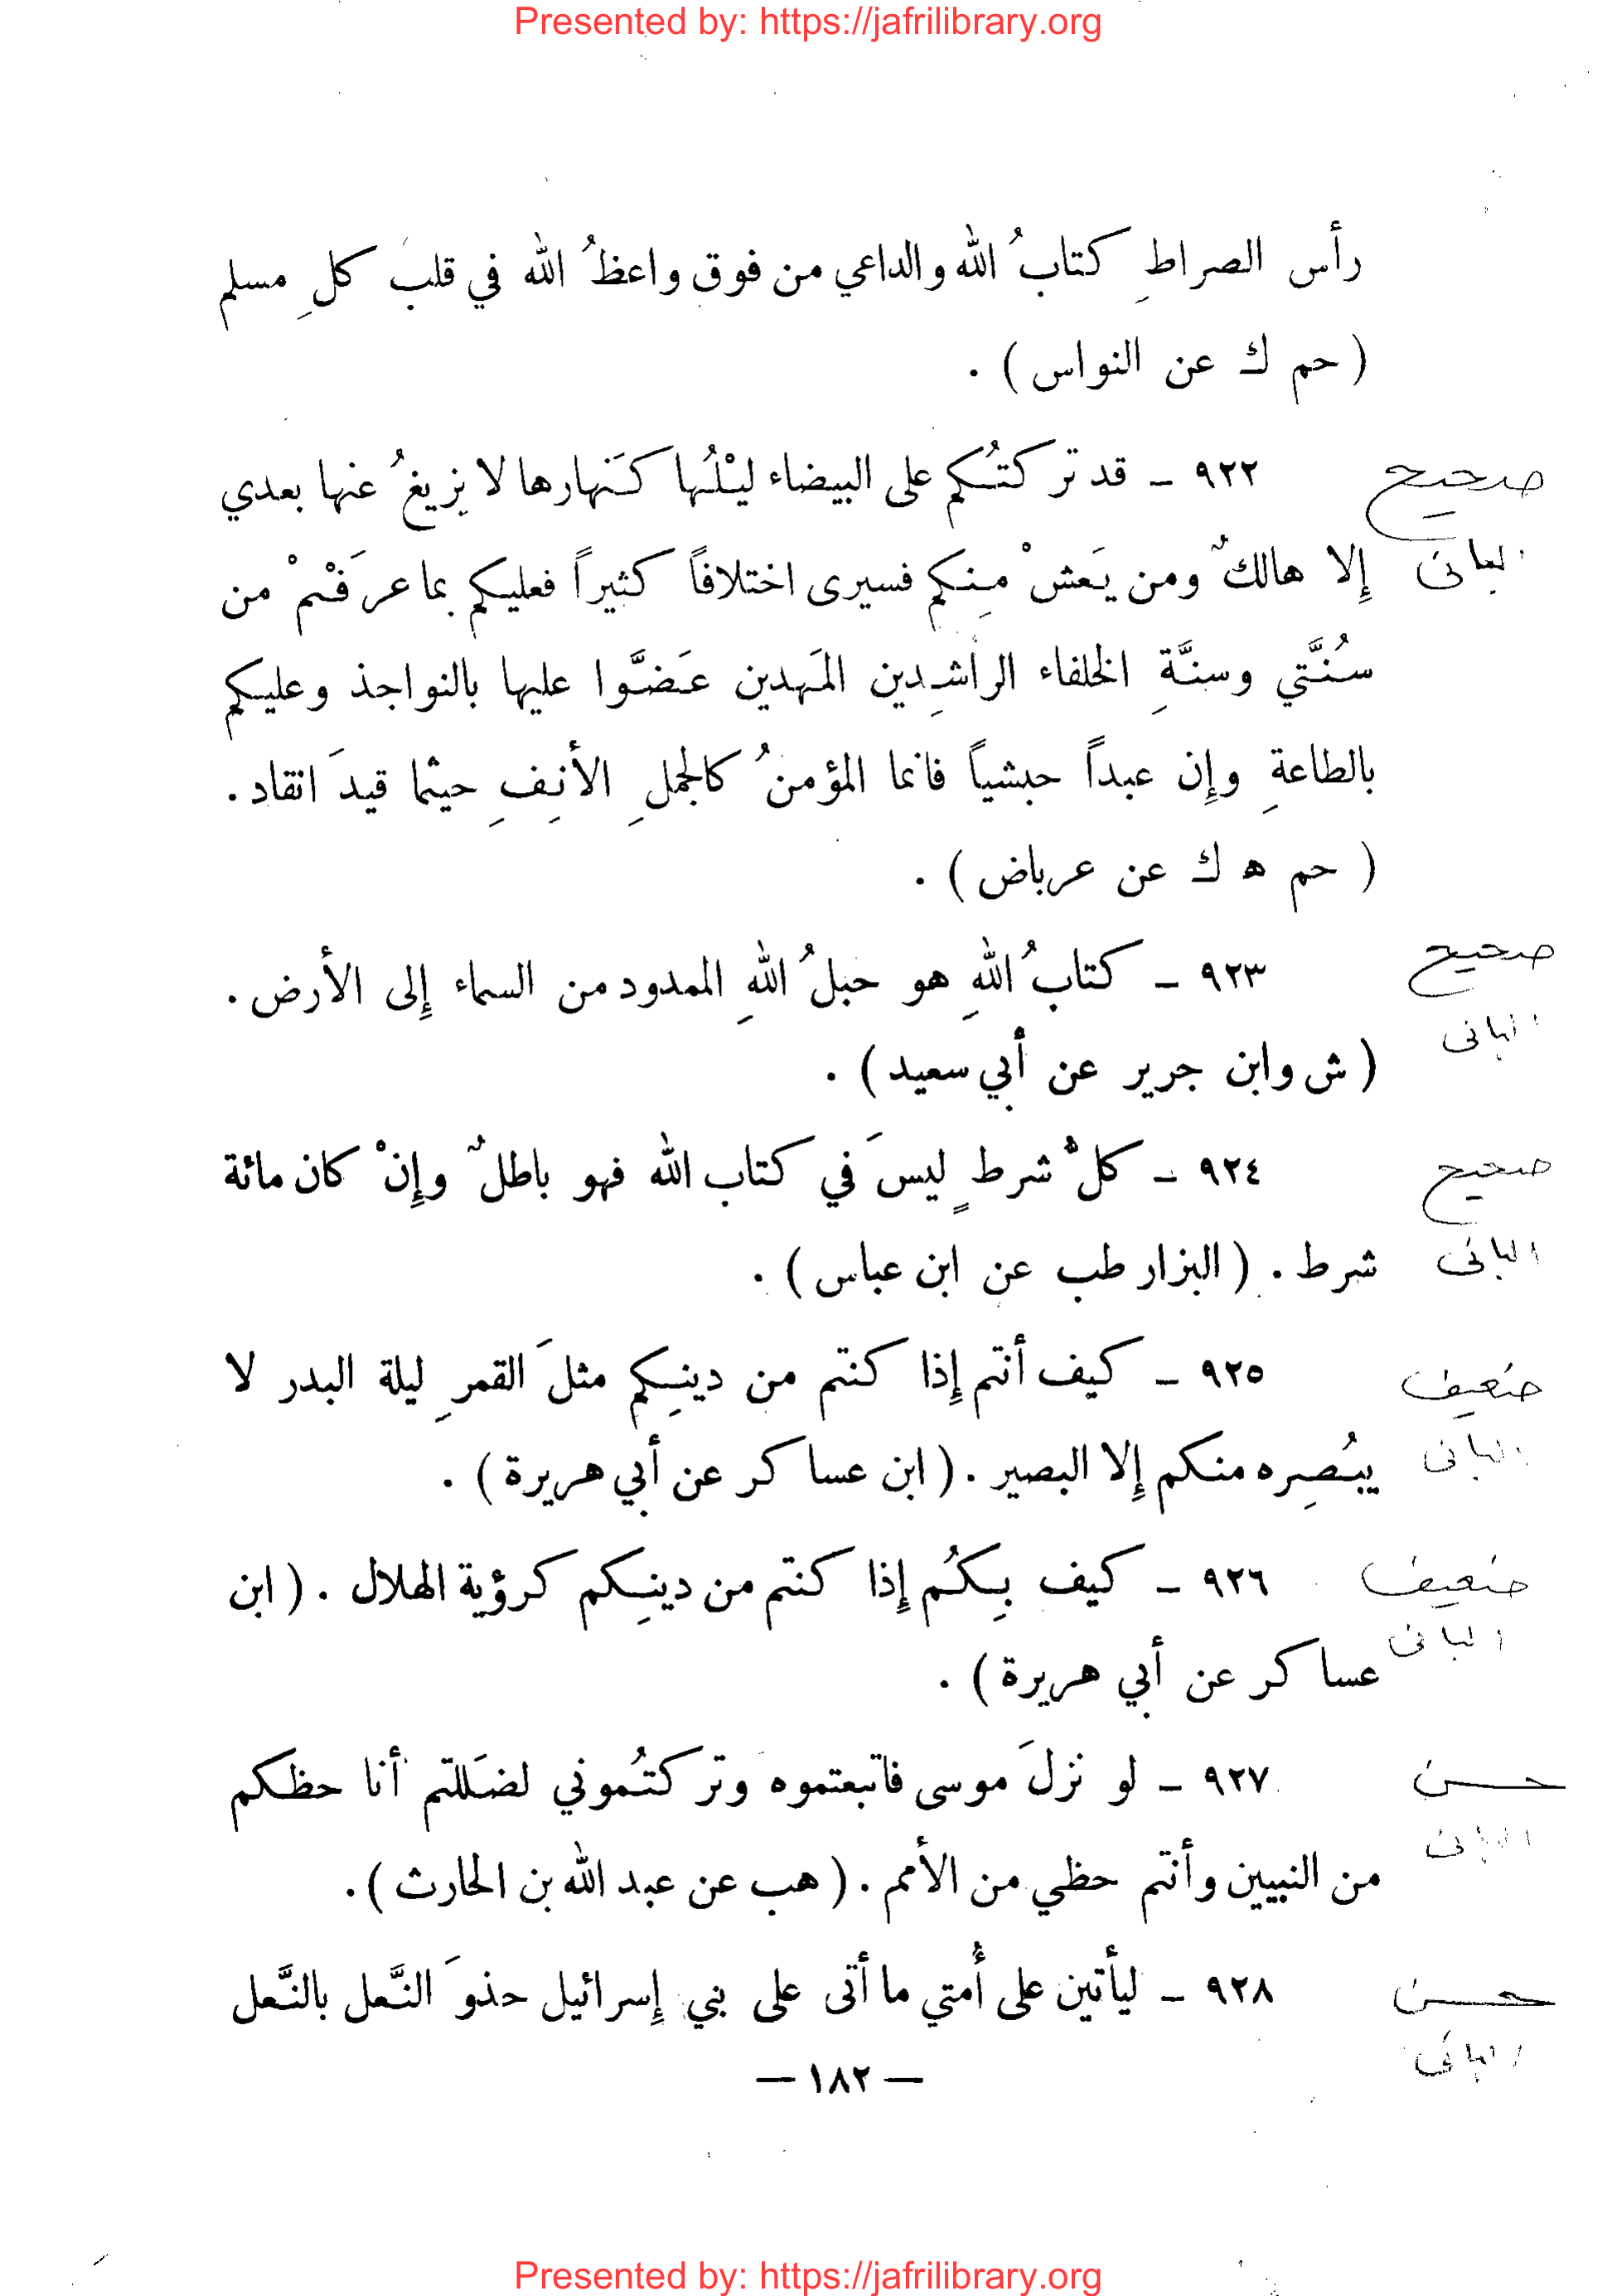 Presented by: https://jafrilibrary.org
رأس الصراطِ كتابُ الله والداعي من فوق واعظُ الله في قلبَ كلِ مسلم
( حم ك عن النواس ) .
٩٢٢ - قد تركتُكم على البيضاء ليْلُها كَنهارها لا يزيغُ عنها بعدي
صحيح
إِلا هالكٌ ومن يَعشْ مِنكم فسيرى اختلافاً كثيراً فعليكم بما عرَفْتمْ من
البانى
سُنَّتي وسنَّةِ الخلفاء الراشِدين المَهدين عَضَّوا عليها بالنواجذ وعليكم
بالطاعةِ وإِن عبداً حبشياً فانما المؤمنُ كالجملِ الأنِفِ حيثما قيدَ انقاد .
( حم ه ك عن عرباض ) .
٩٢٣ - كتابُ اللهِ هو حبلُ اللهِ الممدود من السماء إِلى الأرض .
صحيح
البانى
( ش وابن جرير عن أبي سعيد ) .
٩٢٤ - كلُّ شرطٍ ليسَ في كتاب الله فهو باطلٌ وإِنْ كان مائة
صحيح
شرط . ( البزار طب عن ابن عباس ) .
البانى
٩٢٥ - كيف أنتم إِذا كنتم من دينِكم مثلَ القمرِ ليلة البدر لا
ضعيف
يبُصِره منكم إِلا البصير . ( ابن عساكر عن أبي هريرة ) .
البانى
٩٢٦ - كيف بِكُم إِذا كنتم من دينِكم كرؤية الهلال . ( ابن
ضعيف
البانى
عساكر عن أبي هريرة ) .
٩٢٧ - لو نزلَ موسى فاتبعتموه وتركتُموني لضَللتم أنا حظكم
حسن
البانى
من النبيين وأنتم حظي من الأمم . ( هب عن عبد الله بن الحارث ) .
٩٢٨ - ليأتين على أُمتي ما أتى على بني إِسرائيل حذوَ النَّعل بالنَّعل
حسن
البانى
— ١٨٢ —
Presented by: https://jafrilibrary.org